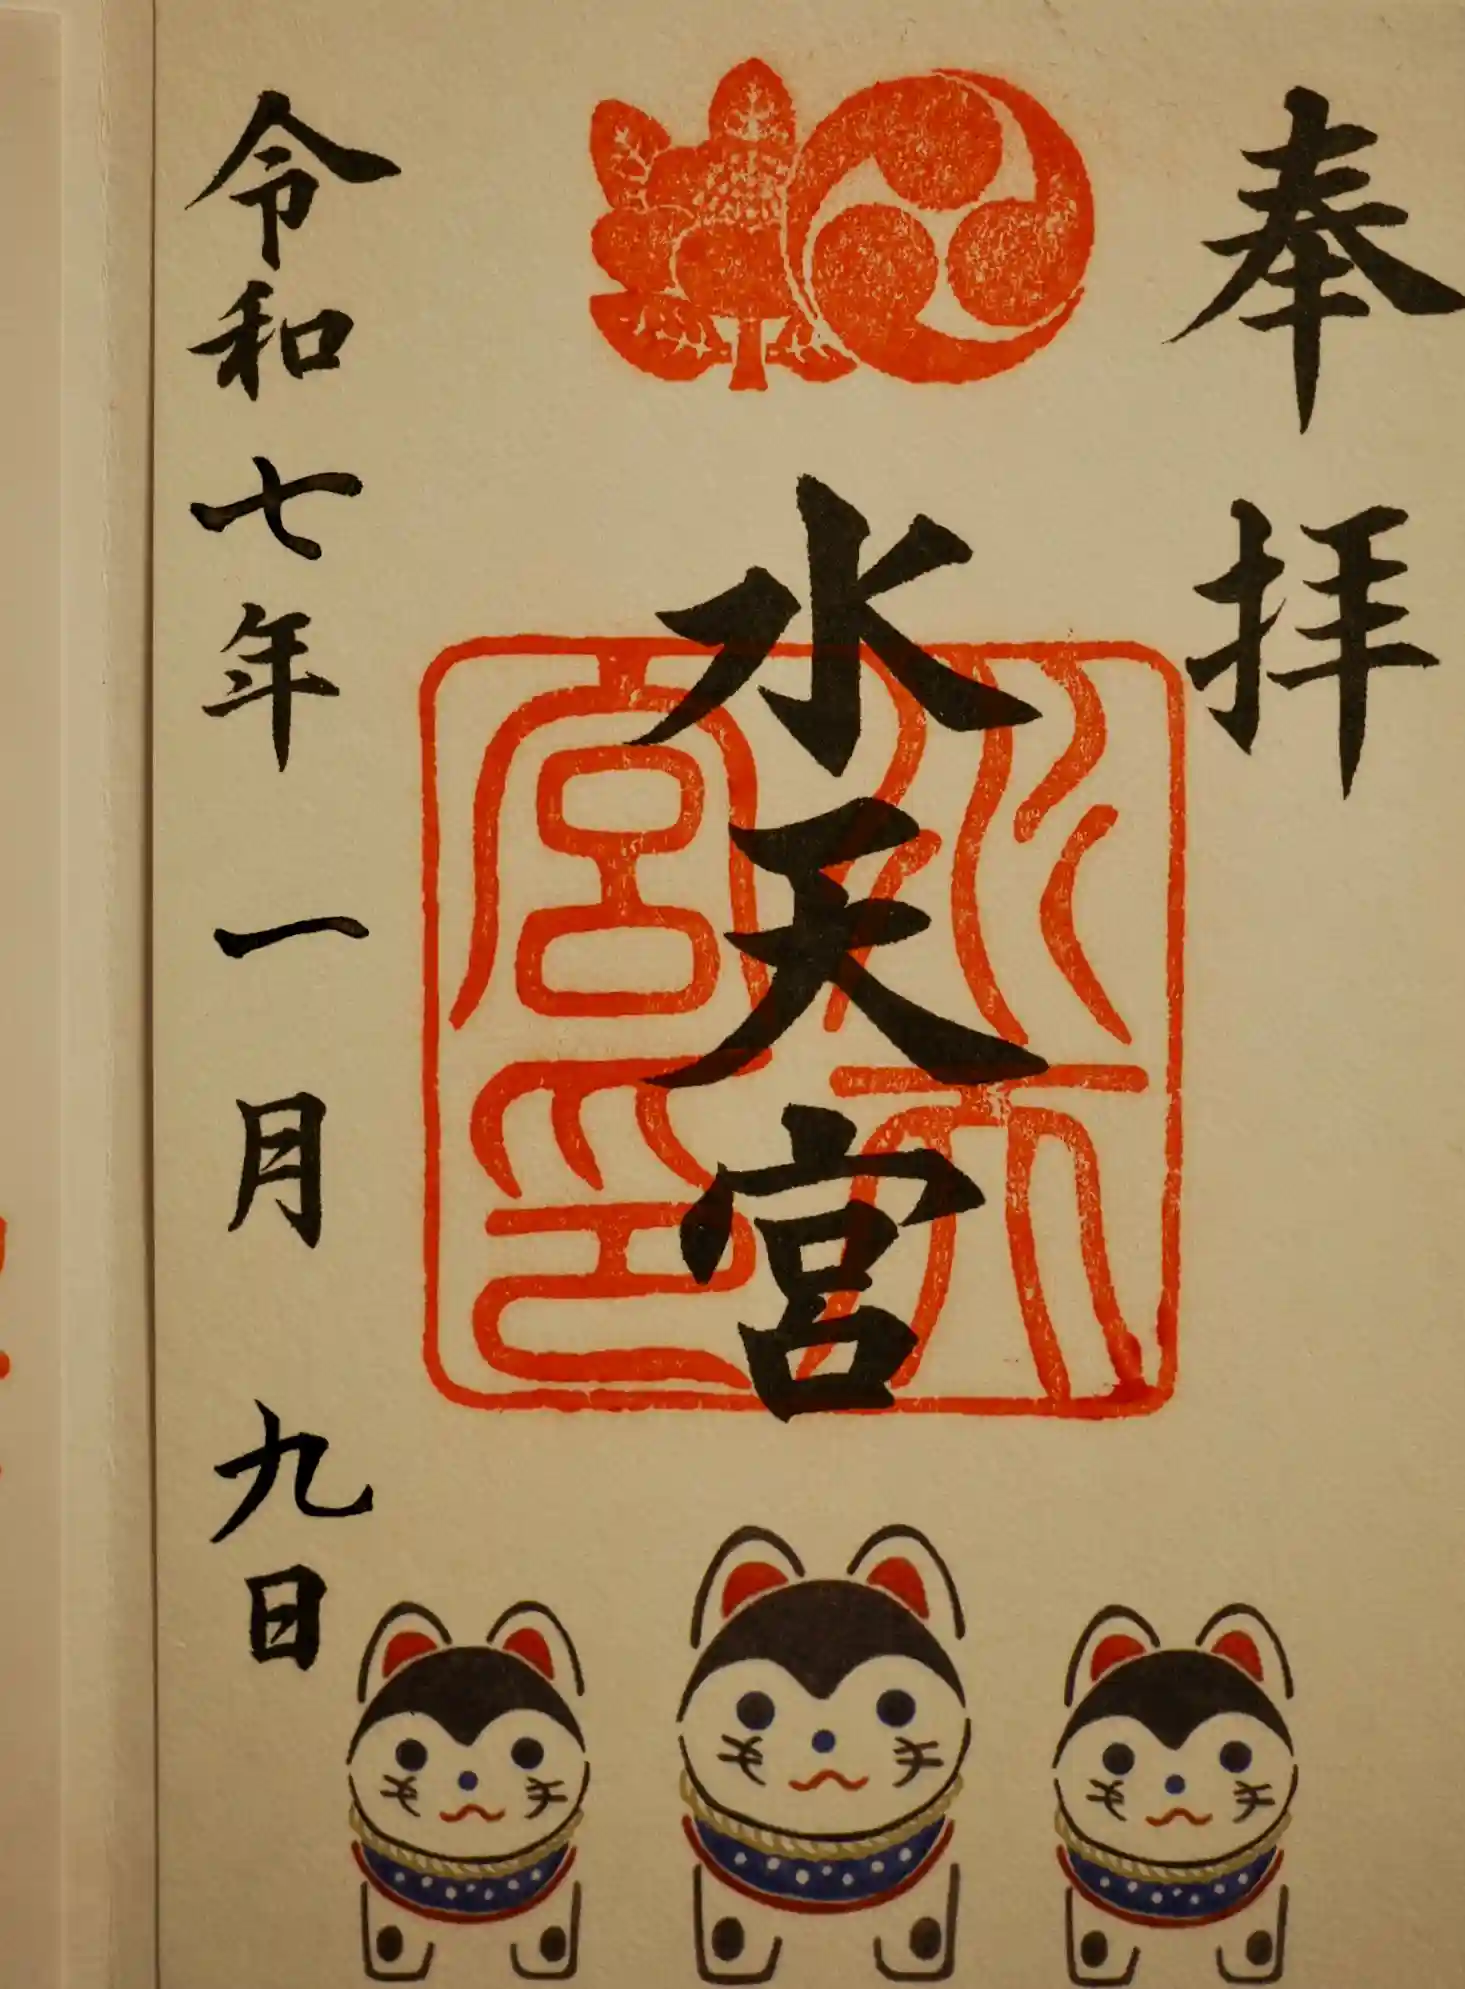 奉拝
水天宮
水天宮印
令和七年一月九日